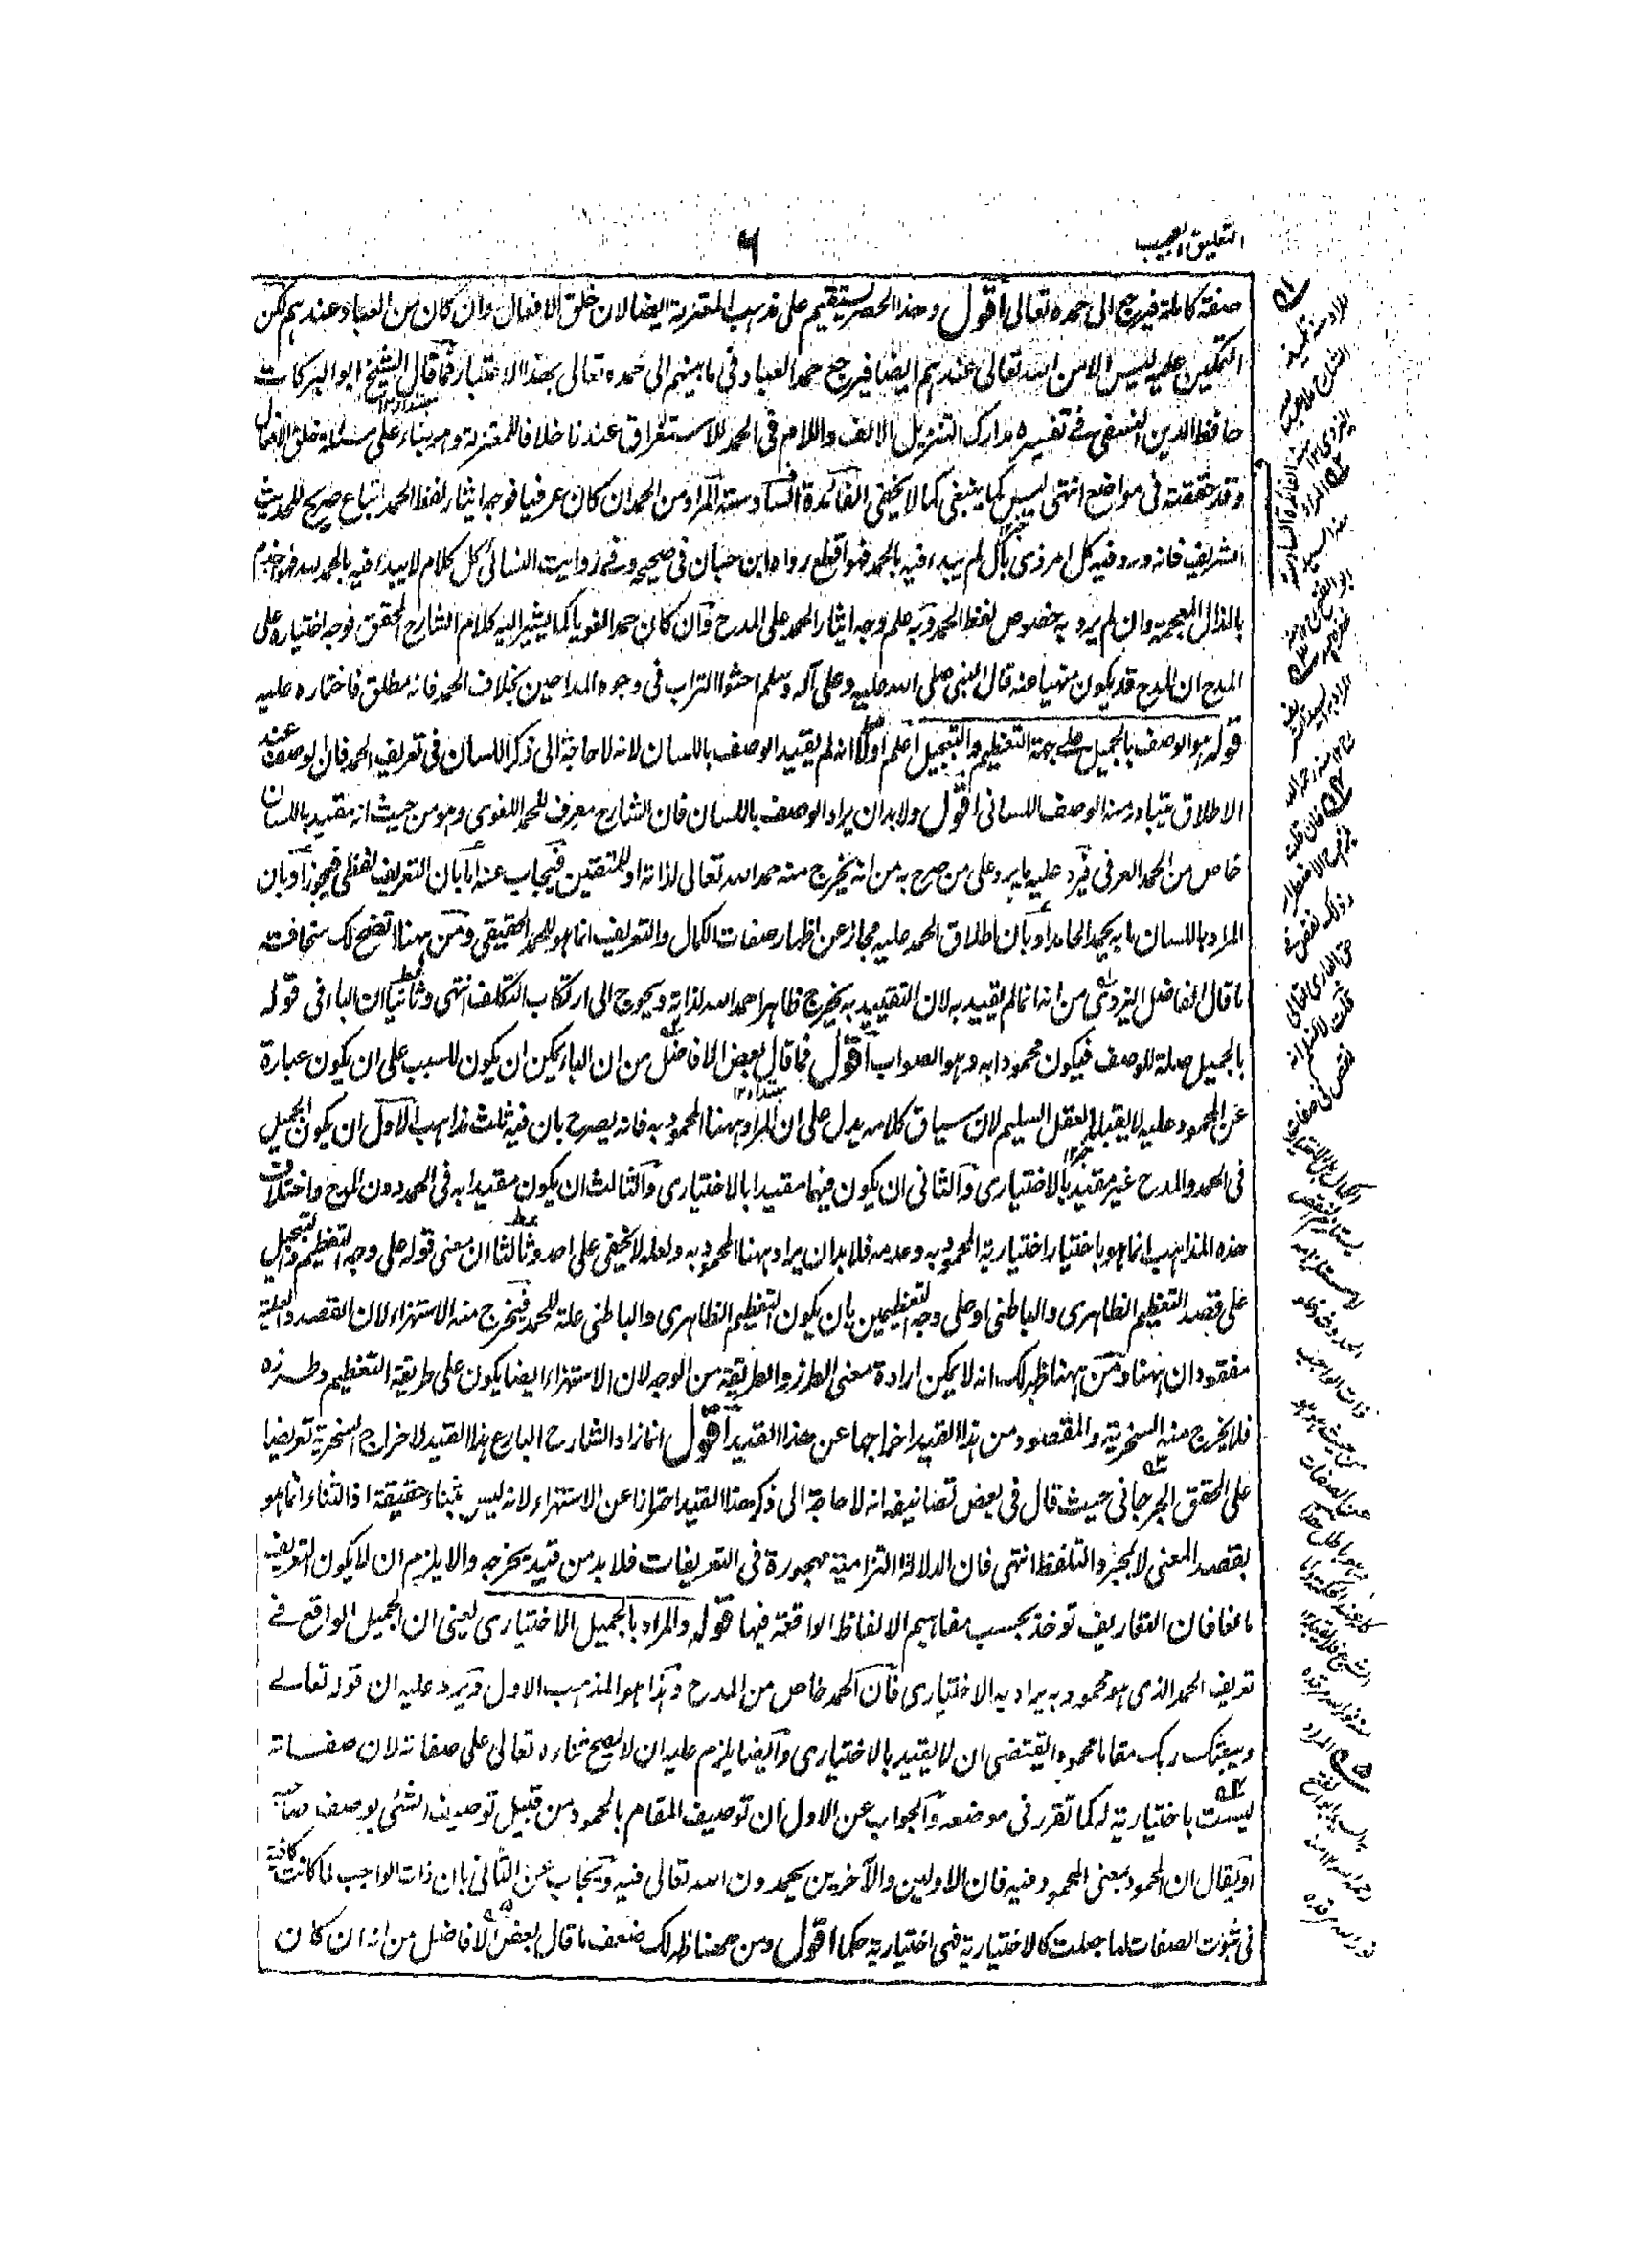 التعليق العجيب
٦
صفة كاملة فيرجع الى حمده تعالى أقول وهذا الحصر يستقيم على مذهب المعتزلة ايضا لان خلق الافعال وان كان من العباد عندهم لكن
التمكين عليه ليس الا من الله تعالى عندهم ايضا فيرجع حمد العباد فى ما بينهم الى حمده تعالى بهذا الاعتبار فما قال الشيخ ابو البركات
حافظ الدين النسفى فى تفسيره مدارك التنزيل الالف واللام فى الحمد للاستغراق عندنا خلافا للمعتزلة وهو بناء على مسئلة خلق الافعال
وقد حققته فى مواضع انتهى ليس كما ينبغى كما لا يخفى الفائدة السادسة المراد من الحمد ان كان عرفيا فوجه ايثار لفظ الحمد اتباع صريح للحديث
الشريف فانه ورد فيه كل امر ذى بال لم يبدء فيه بالحمد فهو اقطع رواه ابن حبان فى صحيحه وفى رواية النسائى كل كلام لا يبدا فيه بالحمد لله فهو اجذم
بالذال المعجمة وان لم يرد به خصوص لفظ الحمد وبه علم وجه ايثار الحمد على المدح وان كان حمدا لغويا كما يشير اليه كلام الشارح المحقق فوجه اختياره على
المدح ان المدح قد يكون منهيا عنه قال النبى صلى الله عليه وعلى آله وسلم احثوا التراب فى وجوه المداحين بخلاف الحمد فانه مطلق فاختاره عليه
قوله هو الوصف بالجميل على جهة التعظيم والتبجيل اعلم اولا انه لم يقيد الوصف باللسان لانه لا حاجة الى ذكر اللسان فى تعريف الحمد فان الوصف عند
الاطلاق يتبادر منه الوصف اللسانى اقول ولا بد ان يراد الوصف باللسان فان الشارح معرف للحمد اللغوى وهو من حيث انه مقيد باللسان
خاص من الحمد العرفى فيرد عليه ما يرد على من صرح به من انه يخرج منه حمد الله تعالى لذاته او للمتقين فيجاب عنه اما بان التعريف لفظى فيجوز او بان
المراد باللسان ما به يحمد الحامد او بان اطلاق الحمد عليه مجاز عن اظهار صفات الكمال والتعريف انما هو للحمد الحقيقى ومن ههنا اتضح لك سخافة
ما قال الفاضل اليزدى من انه انما لم يقيد به لان التقييد به يخرج ظاهرا حمد الله لذاته ويحوج الى ارتكاب التكلف انتهى وثانيا ان الباء فى قوله
بالجميل صلة للوصف فيكون محمودا به وهو الصواب أقول فما قال بعض الافاضل من ان الباء يمكن ان يكون للسبب على ان يكون عبارة
عن المحمود عليه لا يقبله العقل السليم لان سياق كلامه يدل على ان المراد ههنا المحمود به فانه يصرح بان فيه ثلث مذاهب الاول ان يكون الجميل
فى الحمد والمدح غير مقيد بالاختيارى والثانى ان يكون فيهما مقيدا بالاختيارى والثالث ان يكون مقيدا به فى الحمد دون المدح واختلاف
هذه المذاهب انما هو باختيار اختيارية المحمود به وعدمه فلا بد ان يراد ههنا المحمود به ولعله لا يخفى على احد وثالثا ان معنى قوله على وجه التعظيم والتبجيل
على قصد التعظيم الظاهرى والباطنى او على وجه التعظيمين بان يكون التعظيم الظاهرى والباطنى علة للحمد فيخرج منه الاستهزاء لان القصد والعلية
مفقودان ههنا ومن ههنا ظهر لك انه لا يمكن ارادة معنى الطرز والطريقة من الوجه لان الاستهزاء ايضا يكون على طريقة التعظيم وطرزه
فلا يخرج منه السخرية والمقصود من هذا القيد اخراجها عن هذا القيد أقول انما زاد الشارح البارع هذا القيد لاخراج السخرية تعريضا
على المحقق الجرجانى حيث قال فى بعض تصانيفه انه لا حاجة الى ذكر هذا القيد احترازا عن الاستهزاء لانه ليس بثناء حقيقة اذ الثناء انما هو
بقصد المعنى لا بمجرد التلفظ انتهى فان الدلالة التزامية مهجورة فى التعريفات فلا بد من قيد يخرجه والا يلزم ان لا يكون التعريف
مانعا فان التعاريف توخذ بحسب مفاهيم الالفاظ الواقعة فيها قوله والمراد بالجميل الاختيارى يعنى ان الجميل الواقع فى
تعريف الحمد الذى هو محمود به يراد به الاختيارى فان الحمد خاص من المدح وهذا هو المذهب الاول ويرد عليه ان قوله تعالى
ويبعثك ربك مقاما محمودا يقتضى ان لا يقيد بالاختيارى وايضا يلزم عليه ان لا يصح ثناءه تعالى على صفاته لان صفاته
ليست باختيارية له كما تقرر فى موضعه والجواب عن الاول ان توصيف المقام بالمحمود من قبيل توصيف الشئ بوصف صاحبه
او يقال ان المحمود بمعنى المحمود فيه فان الاولين والآخرين يحمدون الله تعالى فيه ويجاب عن الثانى بان ذات الواجب لما كانت كافية
فى ثبوت الصفات لها جعلت كالاختيارية فهى اختيارية حكما اقول ومن ههنا ظهر لك ضعف ما قال بعض الافاضل من انه ان كان